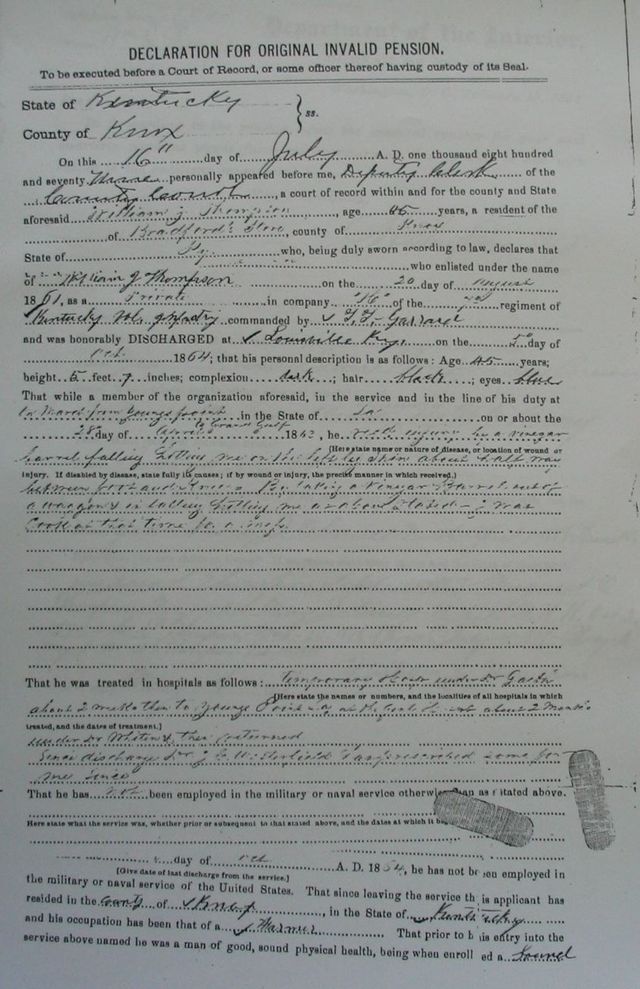 DECLARATION FOR ORIGINAL INVALID PENSION.
To be executed before a Court of Record, or some officer thereof having custody of its Seal.
State of Kentucky
County of Knox } ss.
On this 16" day of July A. D. one thousand eight hundred
and seventy personally appeared before me, Deputy Clerk of the
County Court, a court of record within and for the county and State
aforesaid William J Thompson, age 45 years, a resident of the
of Bradford's Store, county of Knox
State of Ky who, being duly sworn according to law, declares that
who enlisted under the name
of William J Thompson on the 20 day of August
1861, as a Private in company of the regiment of
Kentucky Vol. Infantry commanded by T. T. Garrard
and was honorably DISCHARGED at Louisville Ky on the day of
Oct 1864; that his personal description is as follows: Age 45 years;
height 5 feet 7 inches; complexion dark; hair black; eyes blue
That while a member of the organization aforesaid, in the service and in the line of his duty at
in the State of La on or about the
28 day of April 1863, he injury by a vinegar
(Here state name or nature of disease, or location of wound or
barrel falling hitting me on the left leg shin about half way
injury. If disabled by disease, state fully its causes; if by wound or injury, the precise manner in which received.)
between foot and knee taking a Vinegar Barrel out of
a waggon & in falling hitting me as above stated I was
Cook at that time for a mess
That he was treated in hospitals as follows: under Dr
[Here state the names or numbers, and the localities of all hospitals in which
about 2 then to Youngs Point about 2 months
treated, and the dates of treatment.]
under Dr & then returned
Since discharge Dr prescribed some for
me since
That he has not been employed in the military or naval service otherwise than as stated above.
Here state what the service was, whether prior or subsequent to that stated above, and the dates at which it
day of Oct A. D. 1864, he has not been employed in
[Give date of last discharge from the service.]
the military or naval service of the United States. That since leaving the service this applicant has
resided in the County of Knox, in the State of Kentucky
and his occupation has been that of a Farmer That prior to his entry into the
service above named he was a man of good, sound physical health, being when enrolled a Sound